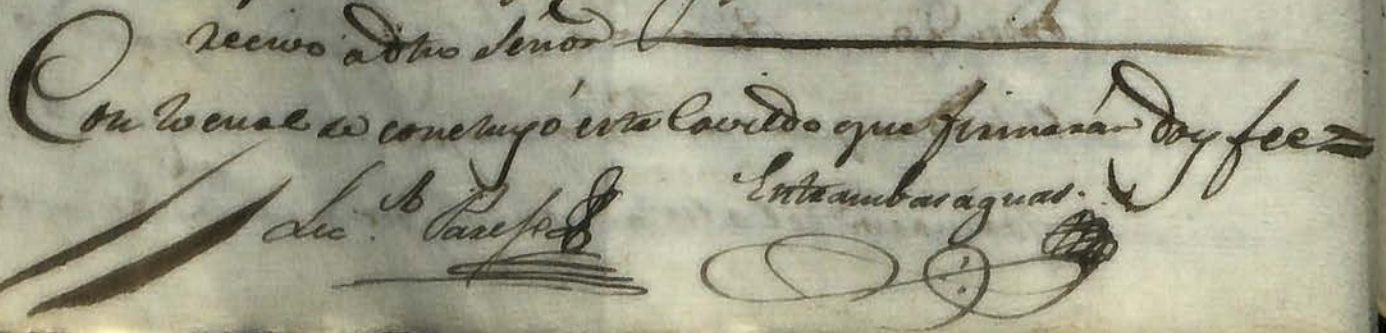 recivo a dho Señor
Con lo cual se concluyó este Cavildo que firmarán doy fee =
Lic.do Entrambasaguas.